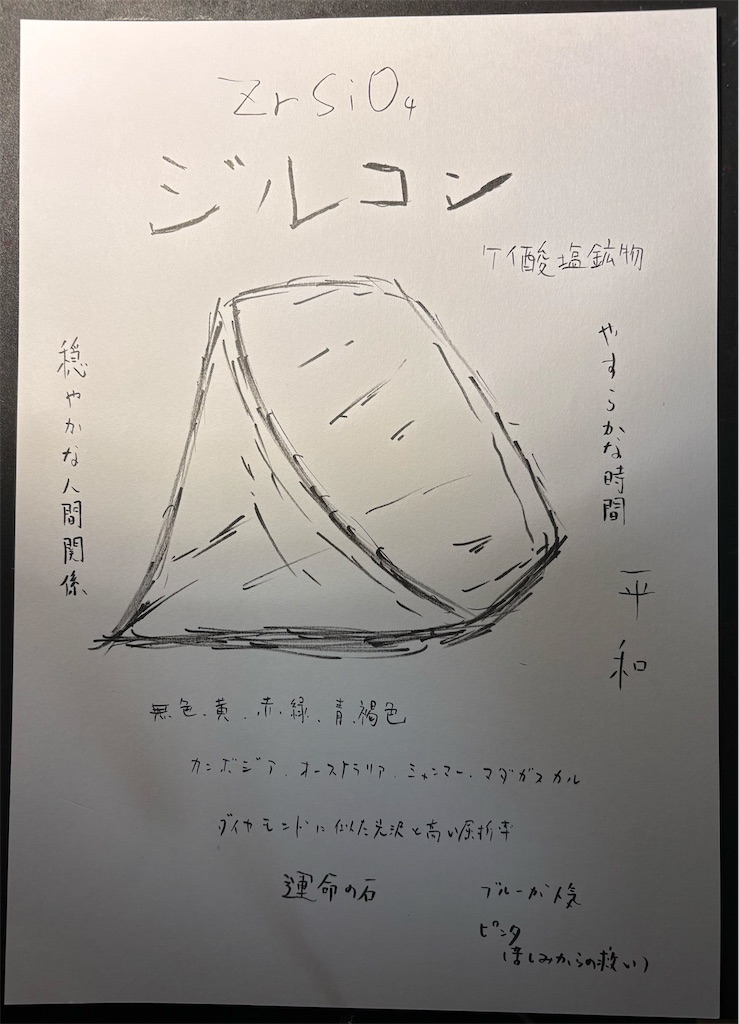 ZrSiO4
ジルコン
ケイ酸塩鉱物
やすらかな時間
平和
穏やかな人間関係
無色、黄、赤、緑、青、褐色
カンボジア、オーストラリア、ミャンマー、マダガスカル
ダイヤモンドに似た光沢と高い屈折率
運命の石
ブルーが人気
(苦しみからの救い)